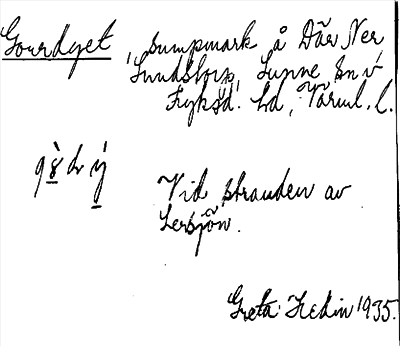 Gourdyet, sumpmark å Där Ner,
Sundstorp, Sunne sn i
Fryksd. hd, Värml. l.
Vid stranden av
Lersjön.
Greta Hedin 1935.